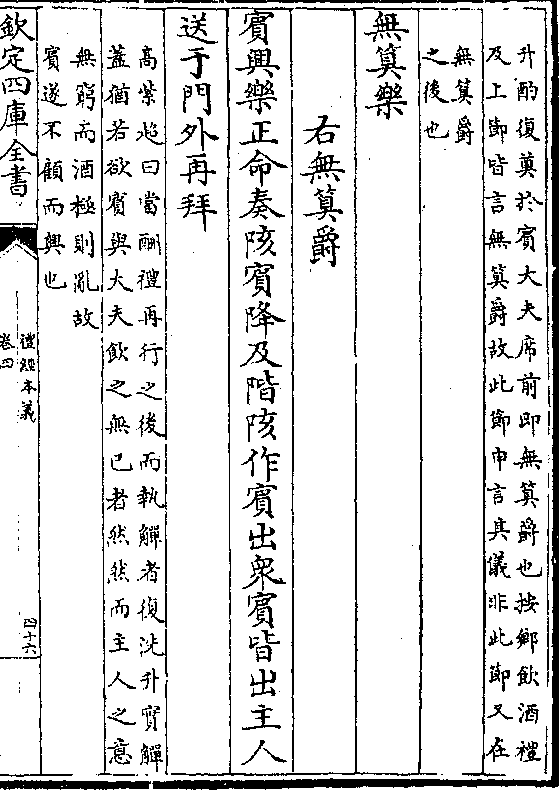 升酌復奠於賓大夫席前即無筭爵也按鄉飲酒禮
及上節皆言無筭爵故此節申言其儀非此節又在
無筭爵
之後也
無筭樂
右無筭爵
賓興樂正命奏陔賓降及階陔作賓出衆賓皆出主人
送于門外再拜
高紫超曰當酬禮再行之後而執觶者復洗升實觶
蓋猶若欲賓與大夫飲之無已者然然而主人之意
無窮而酒極則亂故
賓遂不顧而興也
欽定四庫全書
禮經本義
卷四
四十六